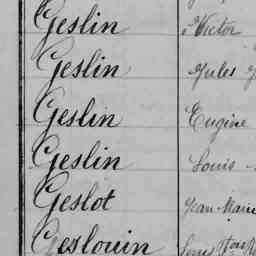 Geslin Victor
Geslin Jules
Geslin Eugène
Geslin Louis
Geslot Jean Marie
Geslouin Louis